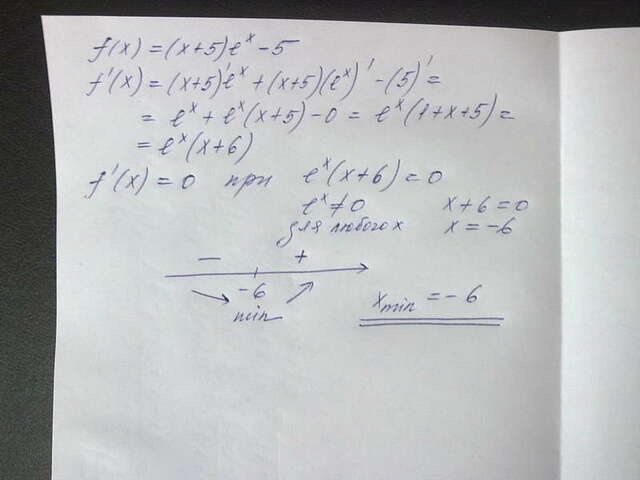 f(x) = (x+5)e^x - 5
f'(x) = (x+5)'e^x + (x+5)(e^x)' - (5)' =
= e^x + e^x(x+5) - 0 = e^x(1+x+5) =
= e^x(x+6)
f'(x) = 0 при e^x(x+6) = 0
e^x ≠ 0 x+6 = 0
для любого x x = -6
− +
-6
min
x_min = -6